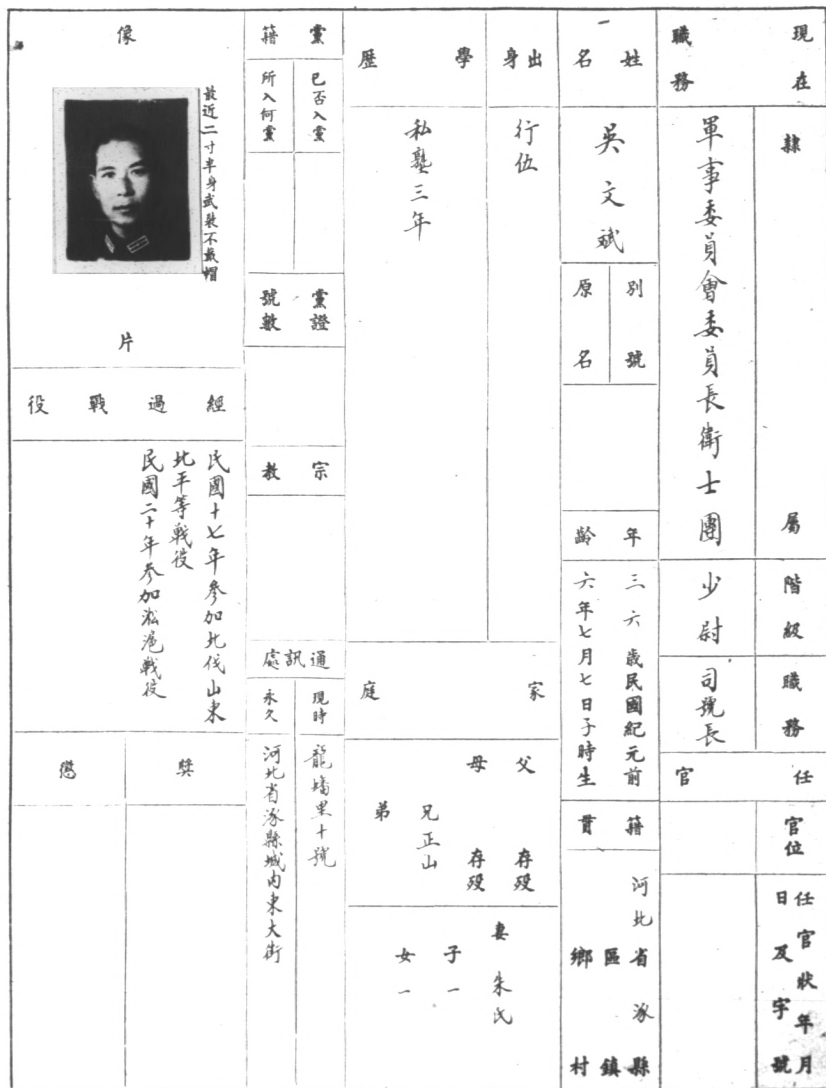 現在職務
隸屬
軍事委員會委員長衛士團
階級
少尉
職務
司號長
任官
官位
任官狀年月日及字號
姓名
吳文斌
別號
原名
年齡
三六歲民國紀元前
六年七月七日子時生
籍貫
河北省涿縣
區鎮
鄉村
出身
行伍
學歷
私塾三年
家庭
父 存歿
母 存歿
兄正山
弟
妻朱氏
子一
女一
黨籍
已否入黨
所入何黨
黨證號數
宗教
通訊處
現時
龍蟠里十號
永久
河北省涿縣城內東大街
像片
最近二寸半身武裝不戴帽
經過戰役
民國十七年參加北伐山東
北平等戰役
民國二十年參加淞滬戰役
獎
懲